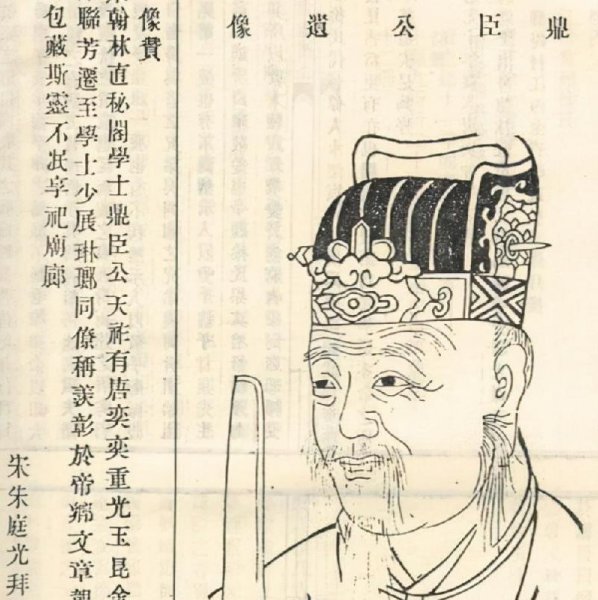 鼎臣公遺像
像贊
翰林直秘閣學士鼎臣公 天祚有唐奕奕重光玉昆金
聯芳遷至學士少展琳瑯同僚稱羨彰於帝鄉文章
包藏斯靈不泯享祀廟廊
宋朱庭光拜